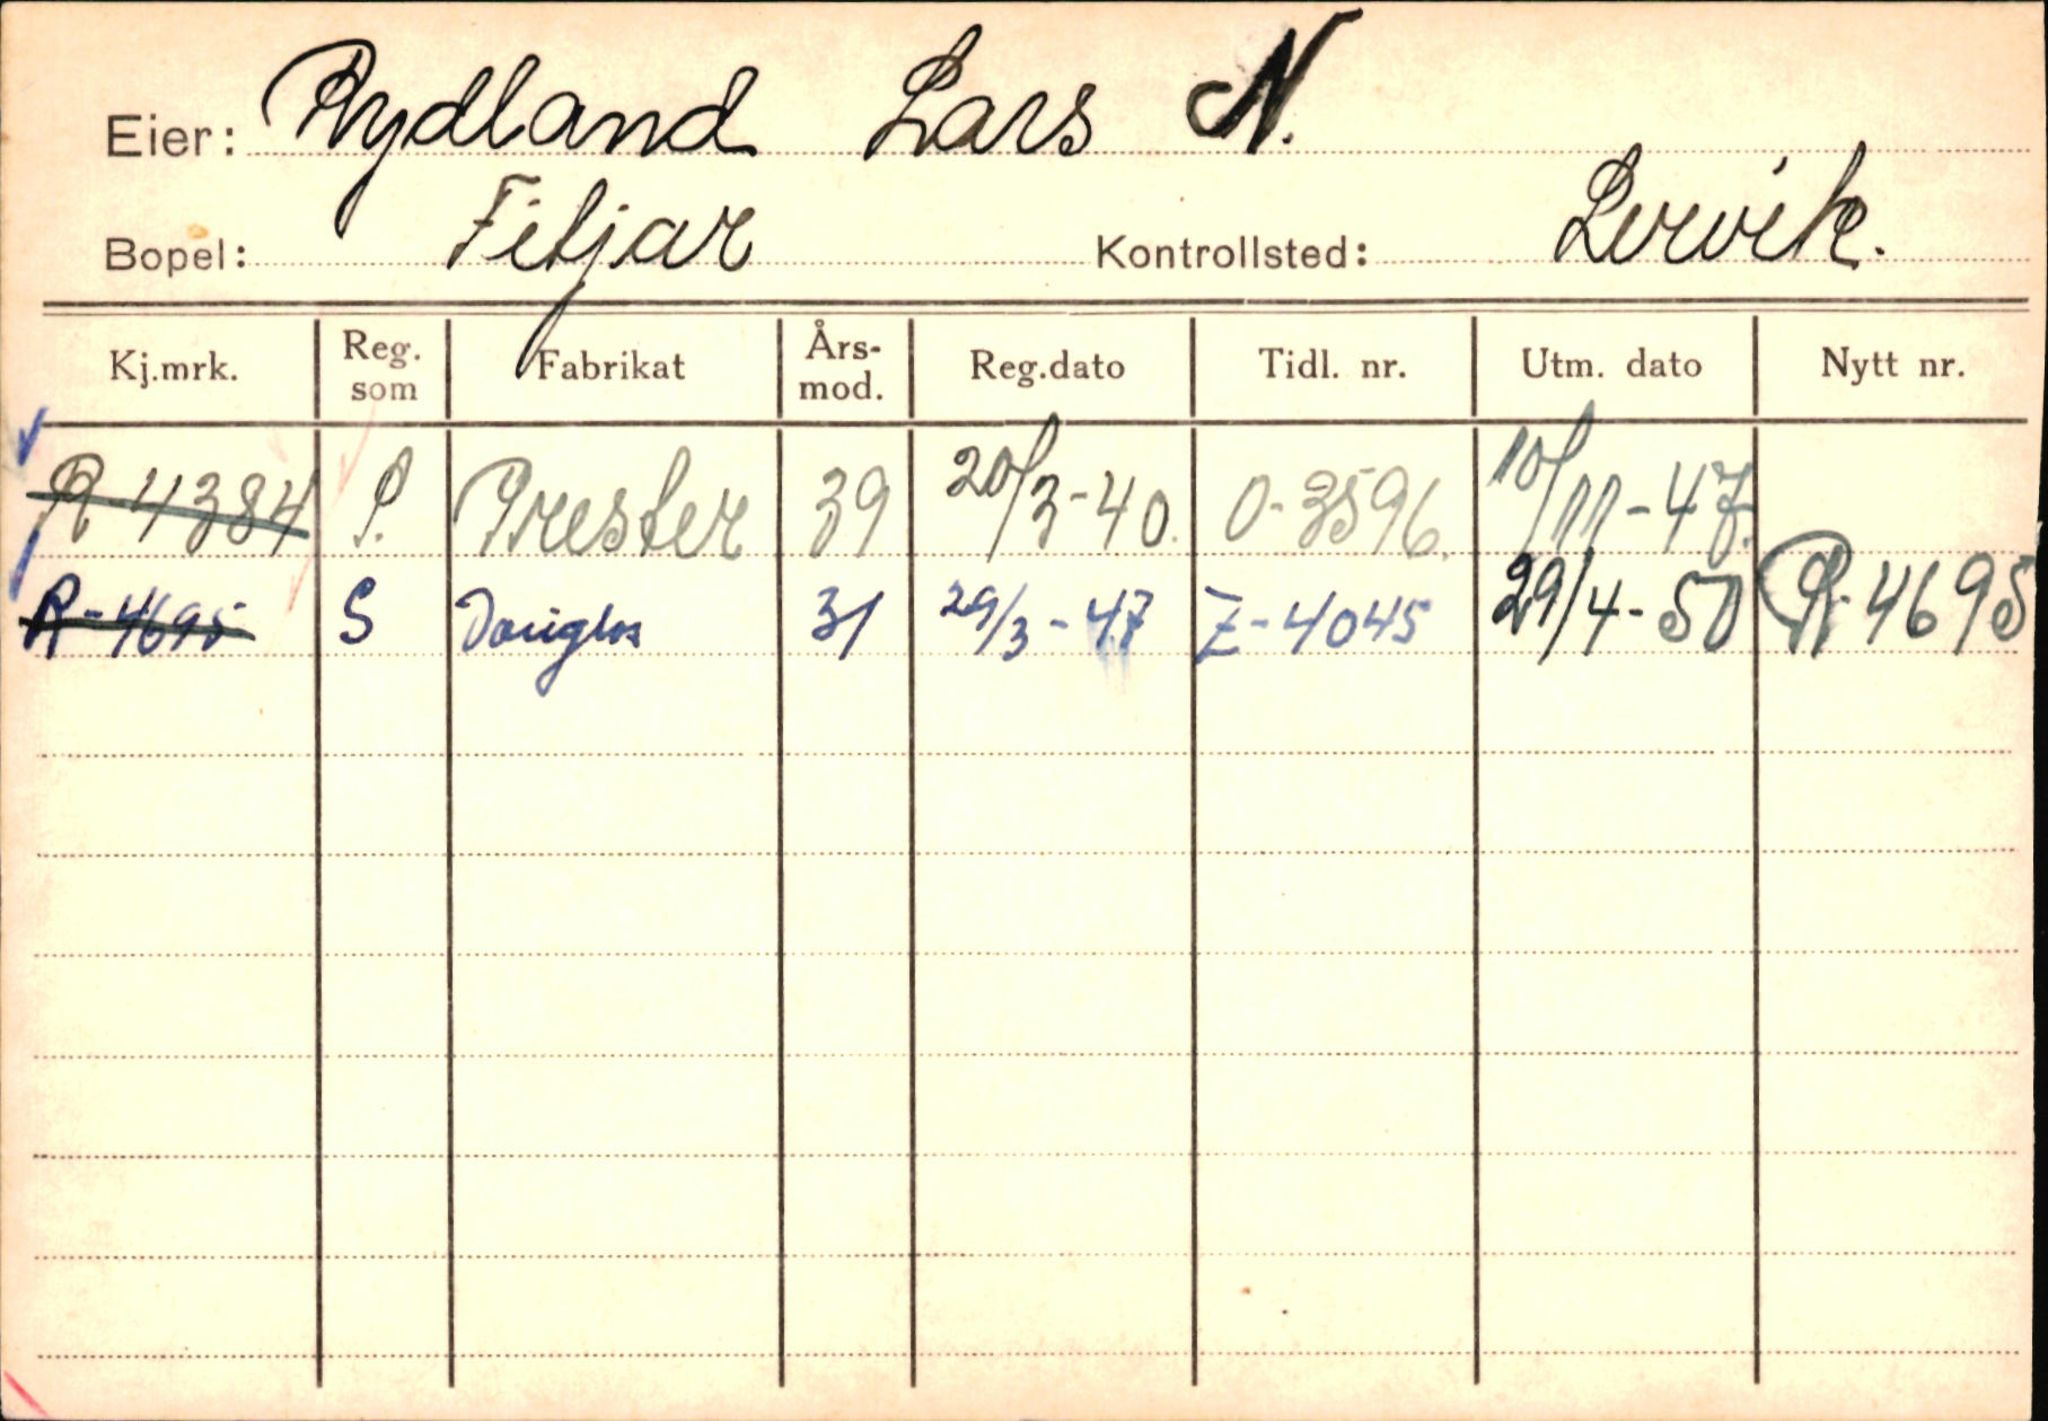 Eier: Rydland Lars N.
Bopel: Fitjar Kontrollsted: Lervik.
Kj.mrk. Reg. som Fabrikat Års-mod. Reg.dato Tidl. nr. Utm. dato Nytt nr.
R 11384 P. Prester 39 20/3-40. O-3596. 10/11-47.
R-4695 S Douglas 31 29/3-47 Z-4045 29/4-50 R-4695